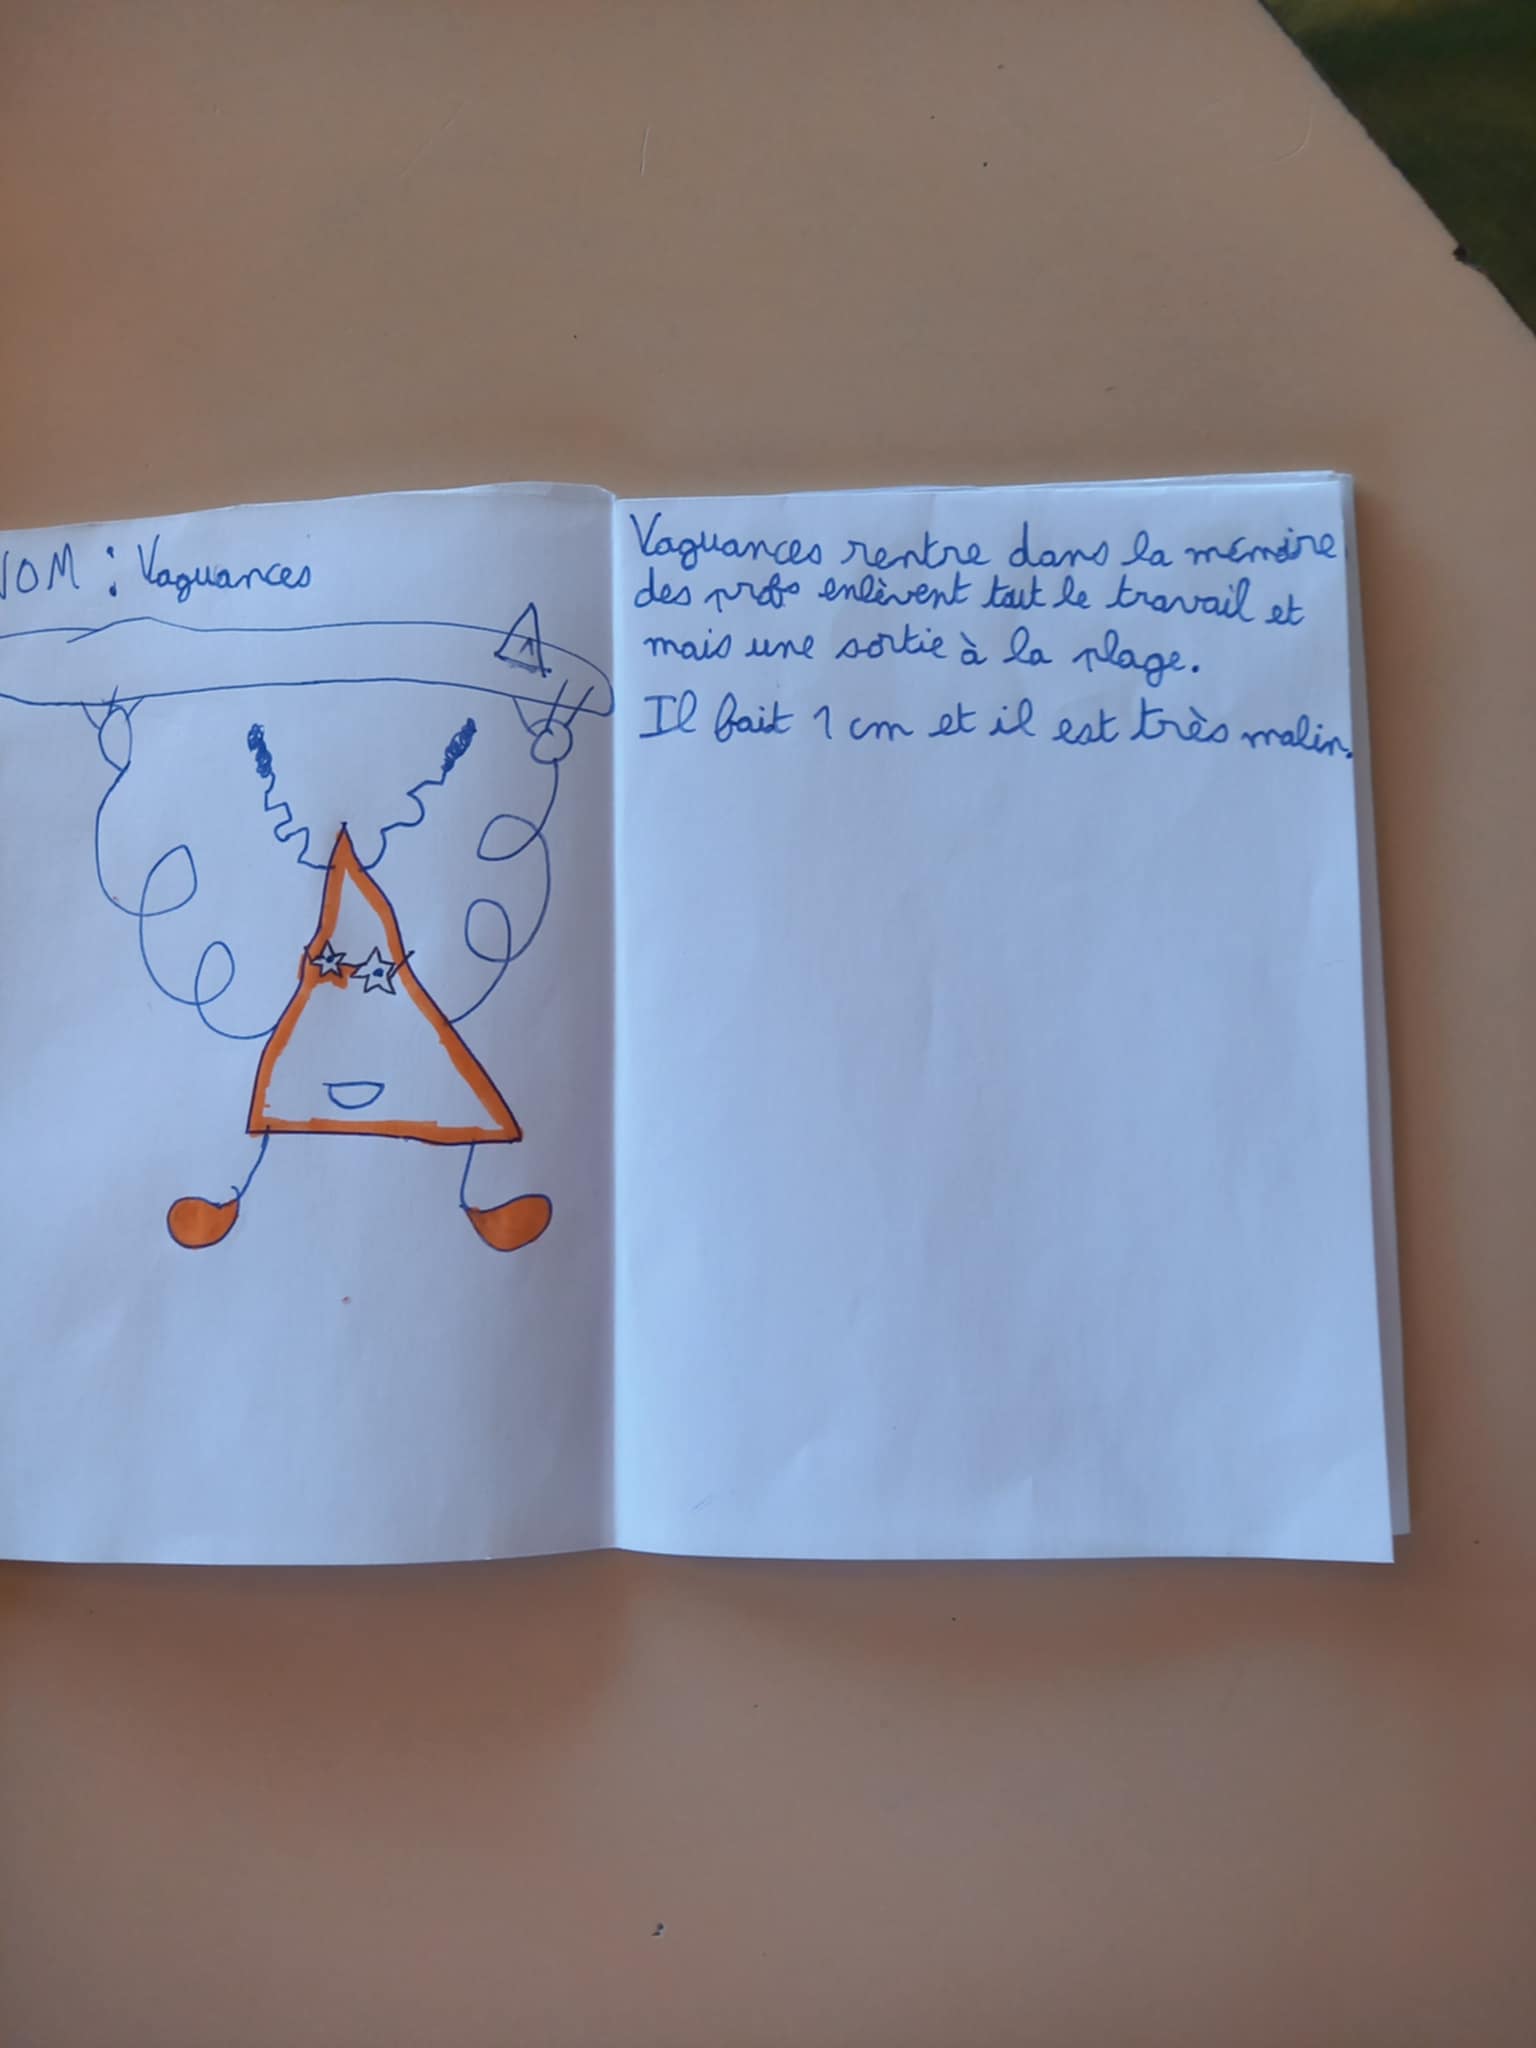 NOM : Vaguances
Vaguances rentre dans la mémoire
des profs enlèvent tout le travail et
mais une sortie à la plage.
Il fait 1 cm et il est très malin.